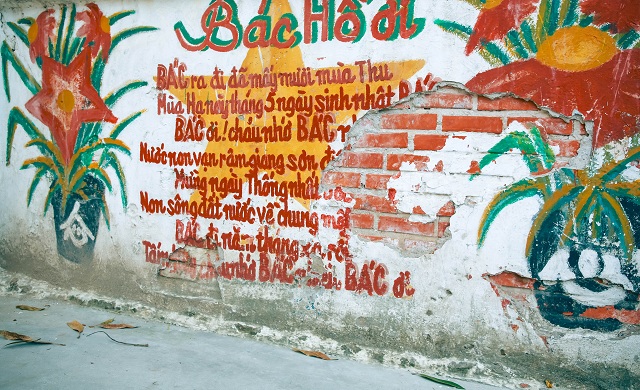 Bác Hồ ơi
BÁC ra đi đã mấy mười mùa Thu
Mùa Hạ này tháng 5 ngày sinh nhật BÁC
BÁC ơi! cháu nhớ BÁC
Nước non vạn rặm giang sơn
Mừng ngày Thống nhất
Non sông đất nước về chung một
BÁC đi năm tháng
nhớ BÁC BÁC ơi